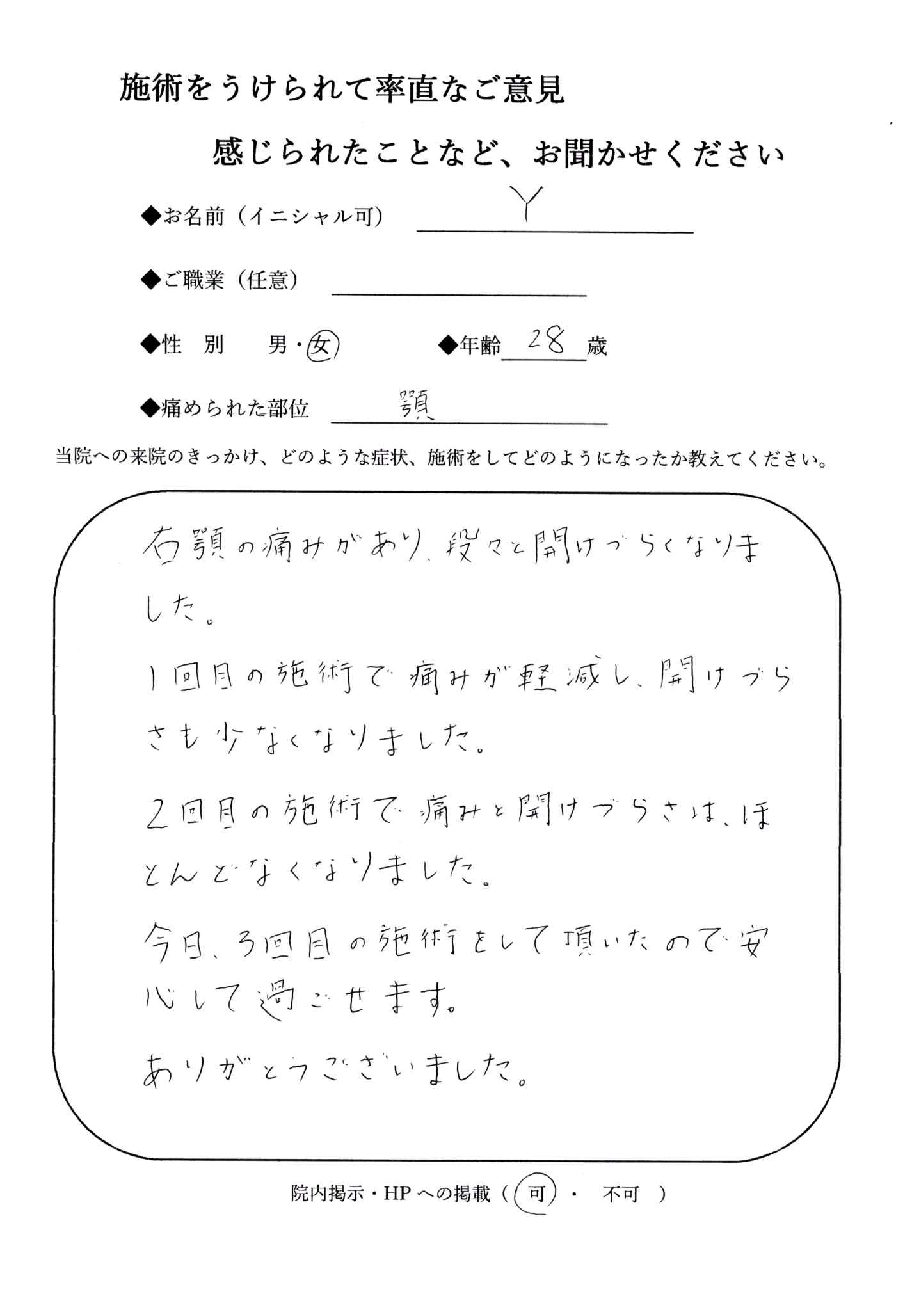 施術をうけられて率直なご意見
感じられたことなど、お聞かせください
◆お名前（イニシャル可） Y
◆ご職業（任意）
◆性　別　　男・女　　◆年齢 28 歳
◆痛められた部位 顎
当院への来院のきっかけ、どのような症状、施術をしてどのようになったか教えてください。
右顎の痛みがあり、段々と開けづらくなりま
した。
1回目の施術で痛みが軽減し、開けづら
さも少なくなりました。
2回目の施術で痛みと開けづらさは、ほ
とんどなくなりました。
今日、3回目の施術をして頂いたので安
心して過ごせます。
ありがとうございました。
院内掲示・HPへの掲載（ 可 ・　不可　）